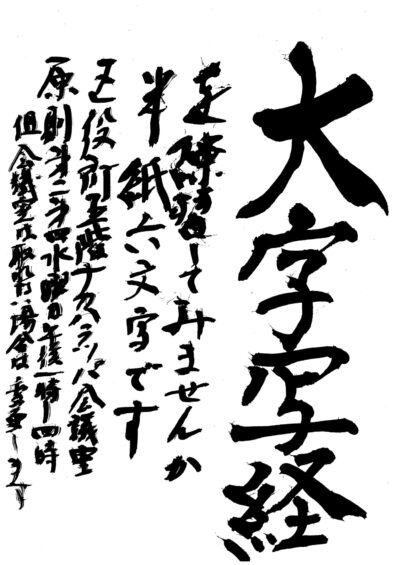 大字写経
を練習してみませんか
半紙六文字です
区役所五階ナカハラッパ会議室
原則第二第四水曜日午後一時〜四時
但会議室が取れない場合は変更します